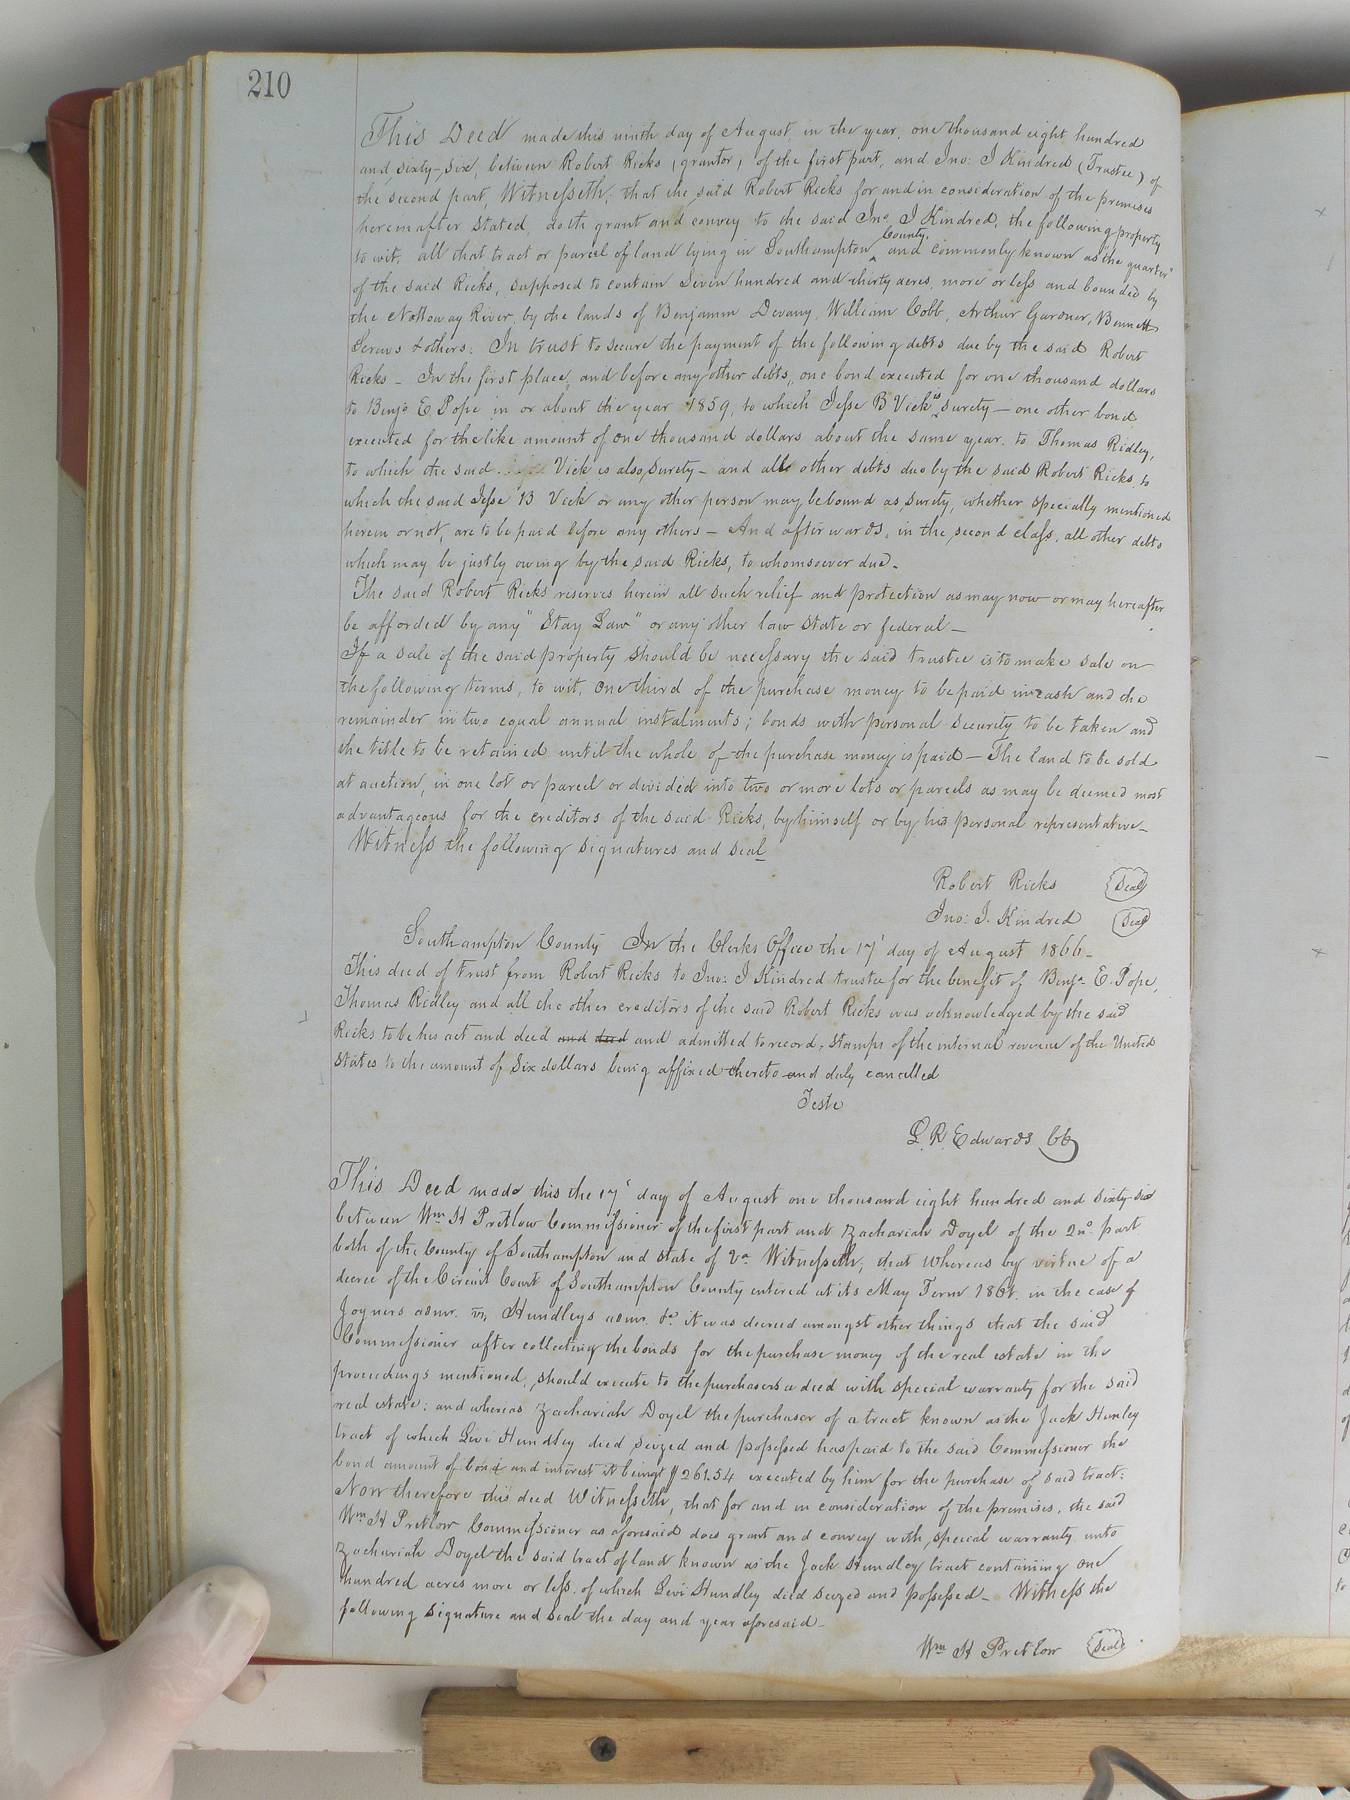 210
This Deed made this ninth day of August, in the year, one thousand eight hundred
and sixty-six, between Robert Ricks (grantor) of the first part, and Jno: J Kindred (Trustee) of
the second part, Witnesseth, that the said Robert Ricks for and in consideration of the premises
hereinafter stated, doth grant and convey to the said Jno. J Kindred, the following property
to wit, all that tract or parcel of land lying in Southampton County, and commonly known as "the quarter"
of the said Ricks, supposed to contain Seven hundred and thirty acres, more or less and bounded by
the Nottoway River, by the lands of Benjamin Devany, William Cobb, Arthur Gardner, Bennett
& others: In trust to secure the payment of the following debts due by the said Robert
Ricks – In the first place, and before any other debts, one bond executed for one thousand dollars
to Benja E. Pope in or about the year 1859, to which Jesse B Vick is surety – one other bond
executed for the like amount of one thousand dollars about the same year to Thomas Ridley,
to which the said Vick is also surety – and all other debts due by the said Robert Ricks to
which the said Jesse B Vick or any other person may be bound as surety, whether specially mentioned
herein or not, are to be paid before any others – And afterwards, in the second class, all other debts
which may be justly owing by the said Ricks, to whomsoever due.
The said Robert Ricks reserves herein all such relief and protection as may now or may hereafter
be afforded by any "Stay Law" or any other law State or federal –
If a sale of the said property should be necessary the said trustee is to make sale on
the following terms, to wit, one third of the purchase money to be paid in cash and the
remainder in two equal annual instalments; bonds with personal security to be taken and
the title to be retained until the whole of the purchase money is paid – The land to be sold
at auction, in one lot or parcel or divided into two or more lots or parcels as may be deemed most
advantageous for the creditors of the said Ricks, by himself or by his personal representative –
Witness the following signatures and seal
Robert Ricks (Seal)
Jno: J. Kindred (Seal)
Southampton County In the Clerks Office the 17' day of August 1866 –
This deed of trust from Robert Ricks to Jno: J Kindred trustee for the benefit of Benja E. Pope,
Thomas Ridley and all the other creditors of the said Robert Ricks was acknowledged by the said
Ricks to be his act and deed and deed and admitted to record, stamps of the internal revenue of the United
States to the amount of Six dollars being affixed thereto and duly cancelled
Teste
L. R. Edwards CC
This Deed made this the 17' day of August one thousand eight hundred and sixty-six
between Wm H Pretlow Commissioner of the first part and Zachariah Doyel of the 2nd. part
both of the County of Southampton and State of Va Witnesseth; that whereas by virtue of a
decree of the Circuit Court of Southampton County entered at its May Term in the case of
Joyners admr. vs. Hundleys admr. &c it was decreed amongst other things that the said
Commissioner after collecting the bonds for the purchase money of the real estate in the
proceedings mentioned, should execute to the purchasers a deed with special warranty for the said
real estate: and whereas Zachariah Doyel the purchaser of a tract known as the Jack Hunley
tract of which Levi Hundley died seized and possessed has paid to the said Commissioner the
bond amount of bond and interest it being $261.54 executed by him for the purchase of said tract:
Now therefore this deed Witnesseth, that for and in consideration of the premises, the said
Wm H Pretlow Commissioner as aforesaid does grant and convey with special warranty unto
Zachariah Doyel the said tract of land known as the Jack Hundley tract containing one
hundred acres more or less of which Levi Hundley died seized and possessed – Witness the
following signature and seal the day and year aforesaid –
Wm H Pretlow (Seal)